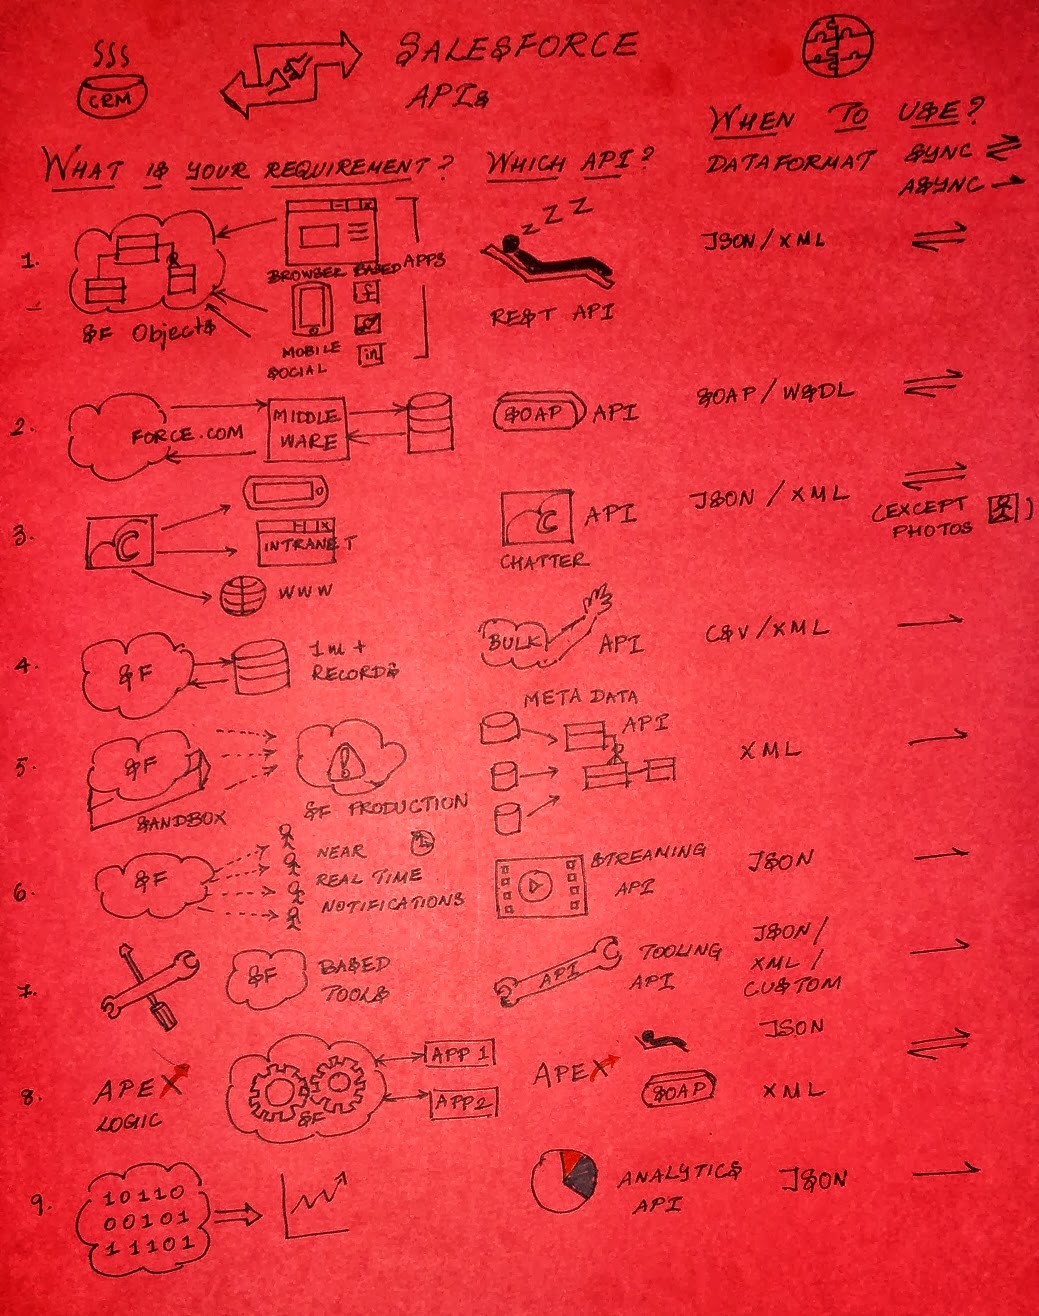 SSS
CRM
SALESFORCE
APIs
WHEN TO USE?
WHAT IS YOUR REQUIREMENT?
WHICH API?
DATAFORMAT
SYNC
ASYNC
1.
SF Objects
BROWSER BASED APPS
MOBILE
SOCIAL
f
in
Z Z Z
REST API
JSON/XML
2.
FORCE.COM
MIDDLE
WARE
SOAP API
SOAP/WSDL
3.
C
INTRANET
WWW
C API
CHATTER
JSON/XML
(EXCEPT
PHOTOS )
4.
SF
1m+
RECORDS
BULK API
CSV/XML
5.
SF
SANDBOX
!
SF PRODUCTION
META DATA
API
XML
6.
SF
NEAR
REAL TIME
NOTIFICATIONS
STREAMING
API
JSON
7.
SF BASED
TOOLS
API
TOOLING
API
JSON/
XML/
CUSTOM
8.
APEX
LOGIC
SF
APP 1
APP2
APEX
SOAP
JSON
XML
9.
10110
00101
11101
ANALYTICS
API
JSON